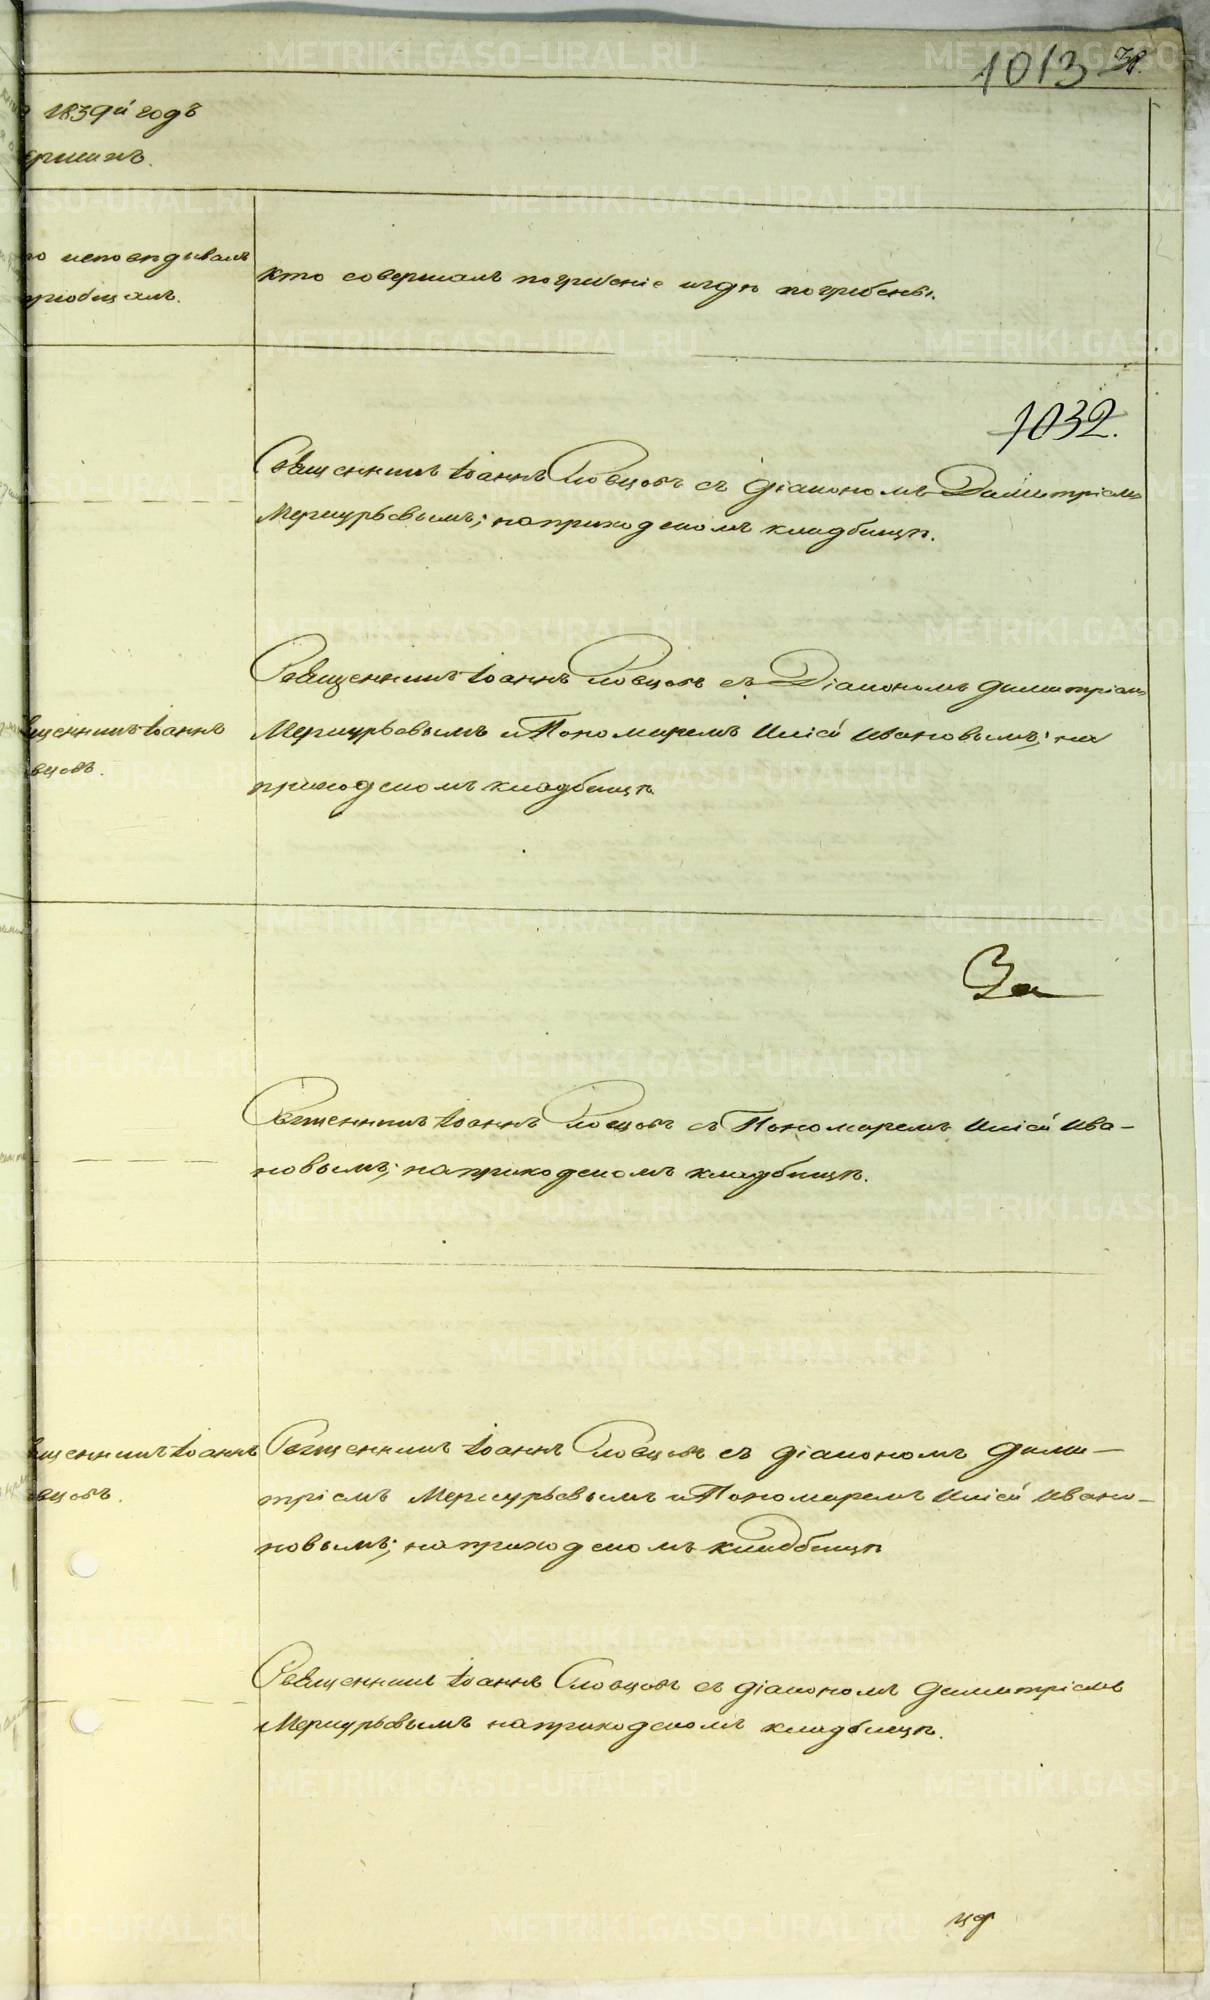 1013 38.
1839й годъ
ершихъ.
о исповѣдывалъ
приобщалъ.
кто совершалъ погребенiе и гдѣ погребены.
1032.
Священникъ Iоаннъ Словцовъ съ дiакономъ Димитрiемъ
Меркурьевымъ; на приходскомъ кладбищѣ.
Священникъ Iоаннъ Словцовъ съ Дiакономъ Димитрiемъ
щенникъ Iоаннъ
Меркурьевымъ и Пономаремъ Илiей Ивановымъ; на
вцовъ.
приходскомъ кладбищѣ
За
Священникъ Iоаннъ Словцовъ съ Пономаремъ Илiей Ива-
новымъ; на приходскомъ кладбищѣ.
щенникъ Iоаннъ
Священникъ Iоаннъ Словцовъ съ дiакономъ Дими-
овцовъ.
трiемъ Меркурьевымъ и Пономаремъ Илiей Ивано-
новымъ; на приходскомъ кладбищѣ
Священникъ Iоаннъ Словцовъ съ дiакономъ Димитрiемъ
Меркурьевымъ на приходскомъ кладбищѣ.
METRIKI.GASO-URAL.RU